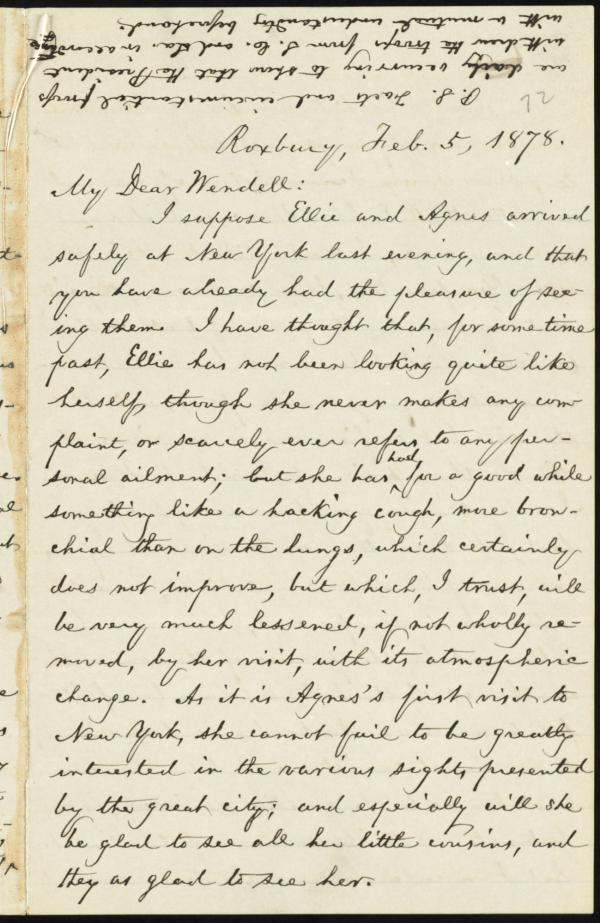 P. S. Facts and circumstantial proofs
are daily occurring to show that the President
withdrew the troops from S. C. and La. in accordance
with a mutual understanding beforehand.
Roxbury, Feb. 5, 1878.
My Dear Wendell:
I suppose Ellie and Agnes arrived
safely at New York last evening, and that
you have already had the pleasure of see-
ing them. I have thought that, for some time
past, Ellie has not been looking quite like
herself, though she never makes any com-
plaint, or scarcely ever refers to any per-
sonal ailment; but she has had for a good while
something like a hacking cough, more bron-
chial than on the lungs, which certainly
does not improve, but which, I trust, will
be very much lessened, if not wholly re-
moved, by her visit, with its atmospheric
change. As it is Agnes's first visit to
New York, she cannot fail to be greatly
interested in the various sights presented
by the great city; and especially will she
be glad to see all her little cousins, and
they as glad to see her.